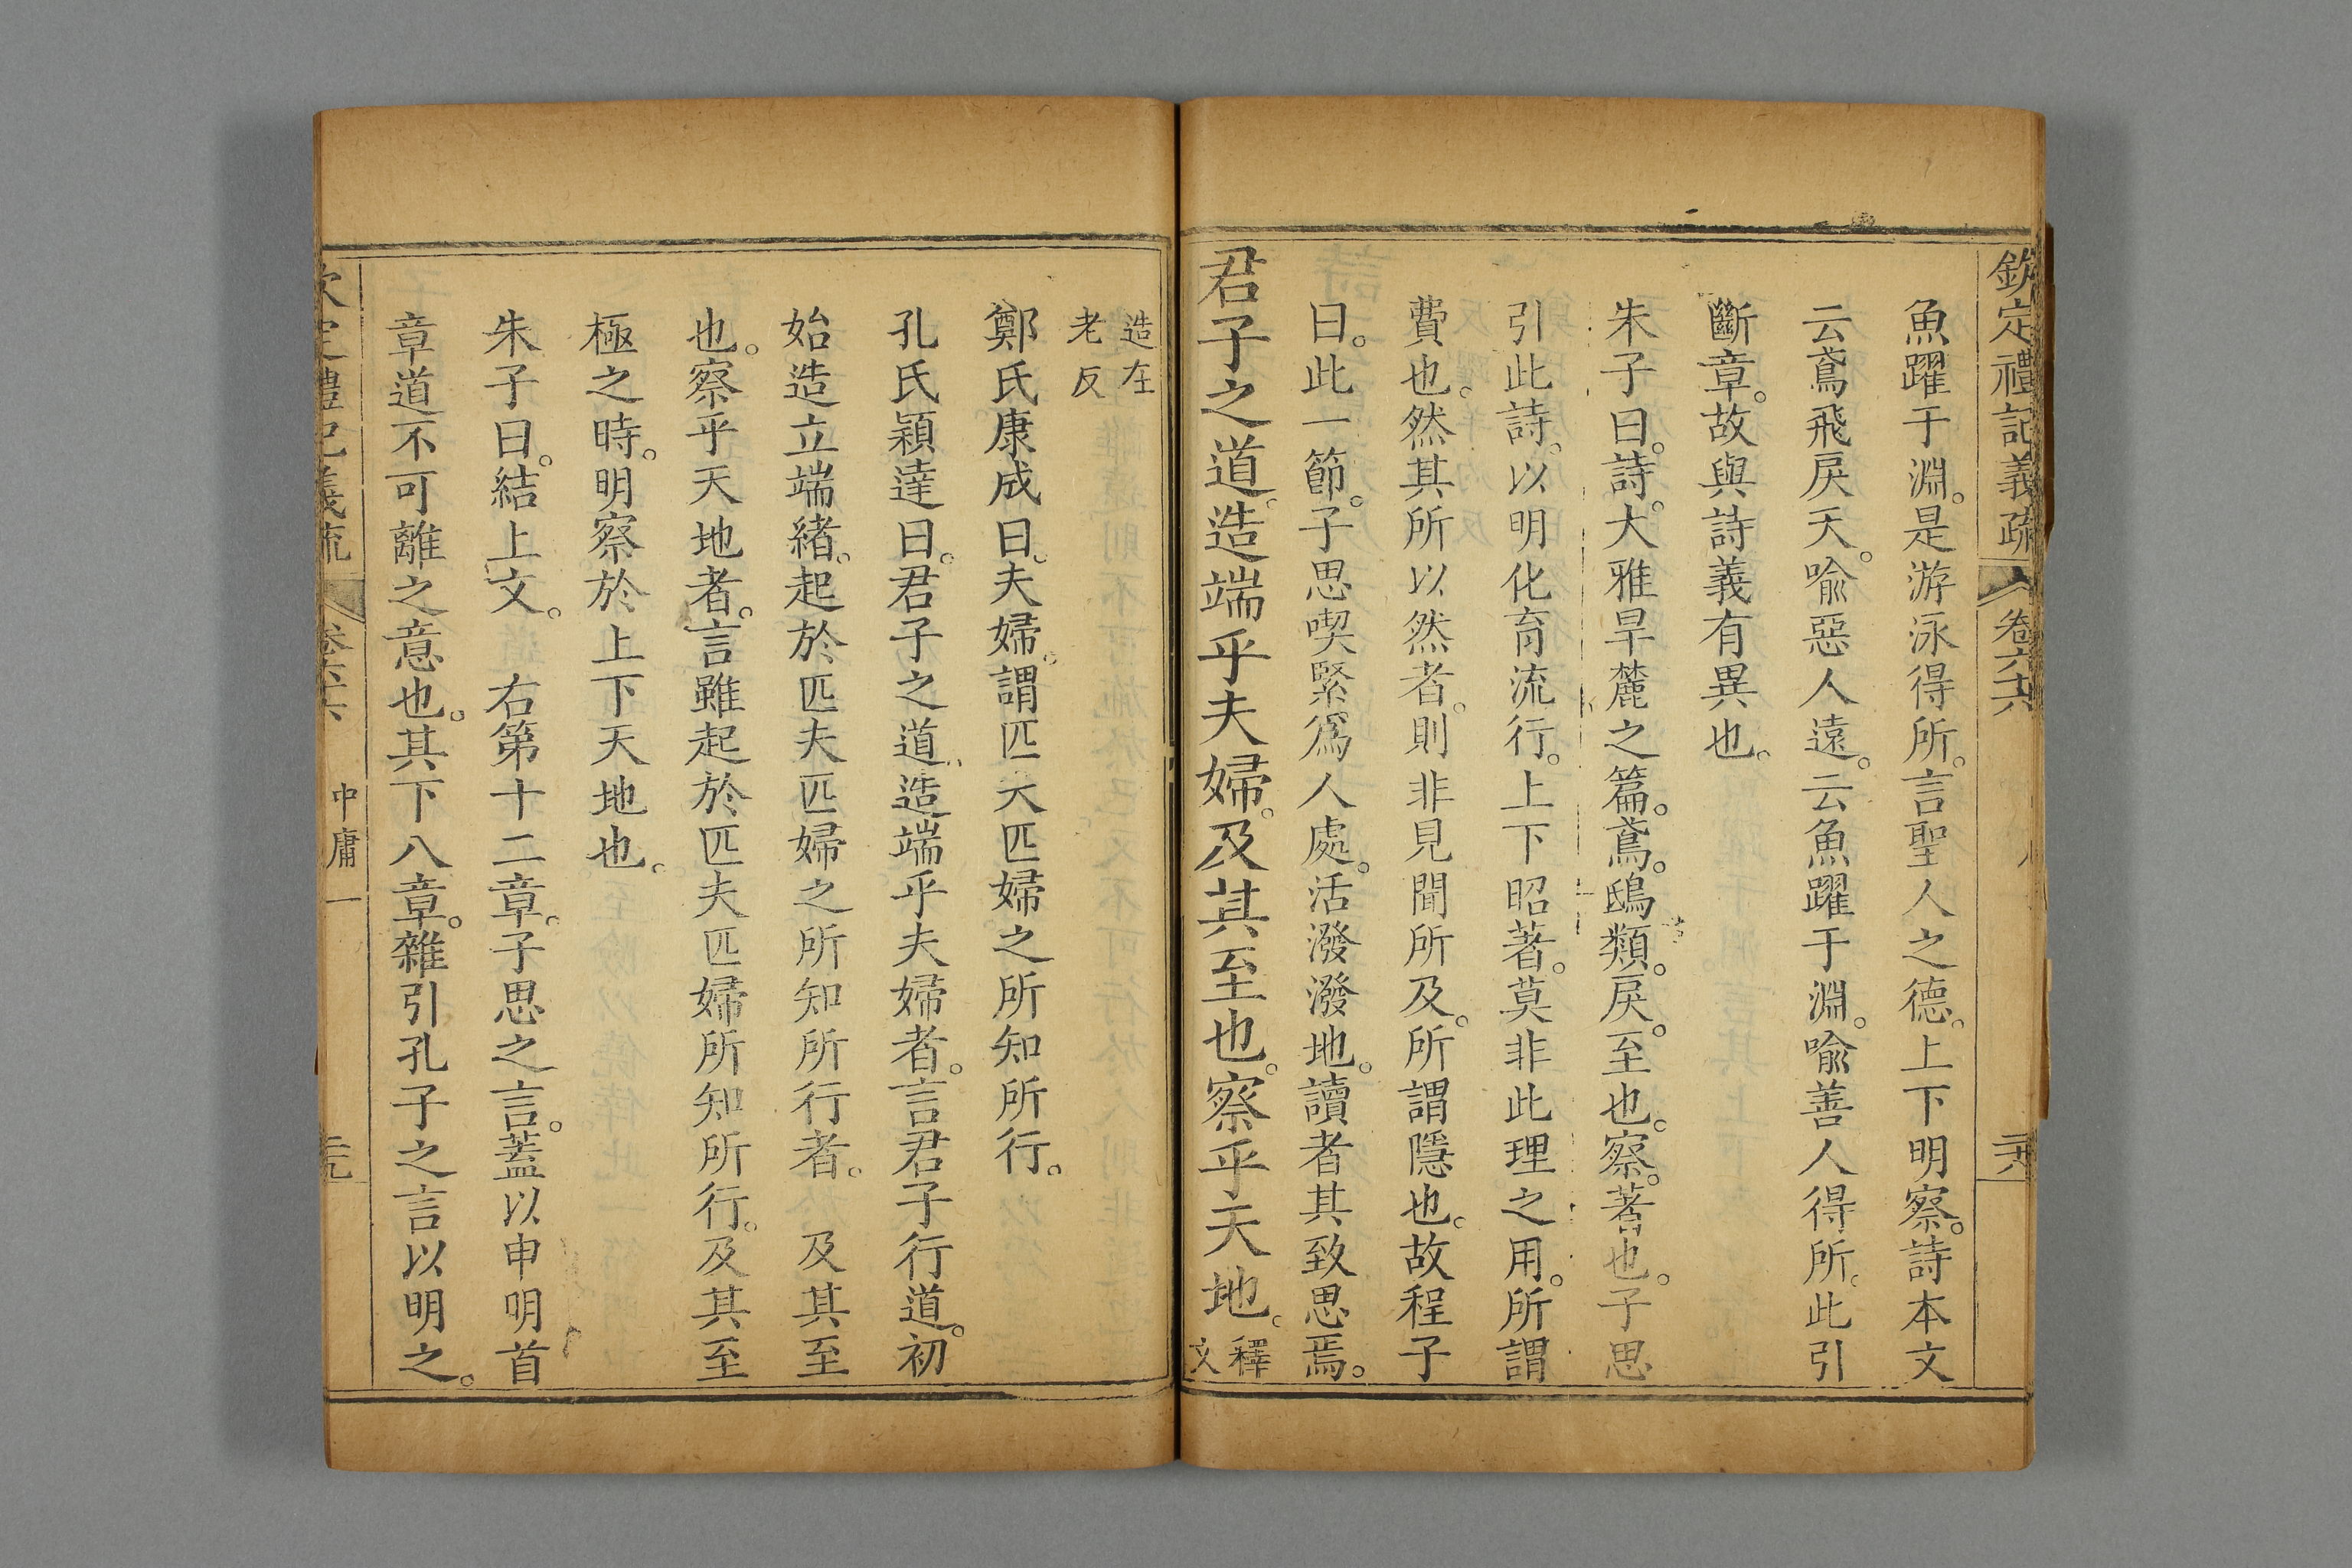 欽定禮記義疏 卷六十六
魚躍于淵。是游泳得所。言聖人之德。上下明察。詩本文
云鳶飛戾天。喻惡人遠。云魚躍于淵。喻善人得所。此引
斷章。故與詩義有異也。
朱子曰。詩。大雅旱麓之篇。鳶。鴟類。戾。至也。察。著也。子思
引此詩。以明化育流行。上下昭著。莫非此理之用。所謂
費也。然其所以然者。則非見聞所及。所謂隱也。故程子
曰。此一節。子思喫緊爲人處。活潑潑地。讀者其致思焉。
君子之道。造端乎夫婦。及其至也。察乎天地。釋文
造在
老反
鄭氏康成曰。夫婦。謂匹夫匹婦之所知所行。
孔氏穎達曰。君子之道。造端乎夫婦者。言君子行道。初
始造立端緒。起於匹夫匹婦之所知所行者。 及其至
也。察乎天地者。言雖起於匹夫匹婦所知所行。及其至
極之時。明察於上下天地也。
朱子曰。結上文。 右第十二章。子思之言。蓋以申明首
章道不可離之意也。其下八章。雜引孔子之言以明之。
欽定禮記義疏 卷六十六 中庸一